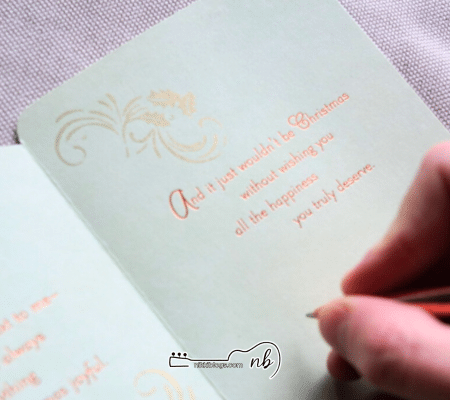 to me—
always
joyful.
And it just wouldn't be Christmas
without wishing you
all the happiness
you truly deserve.
nikkiblogs.com
nb